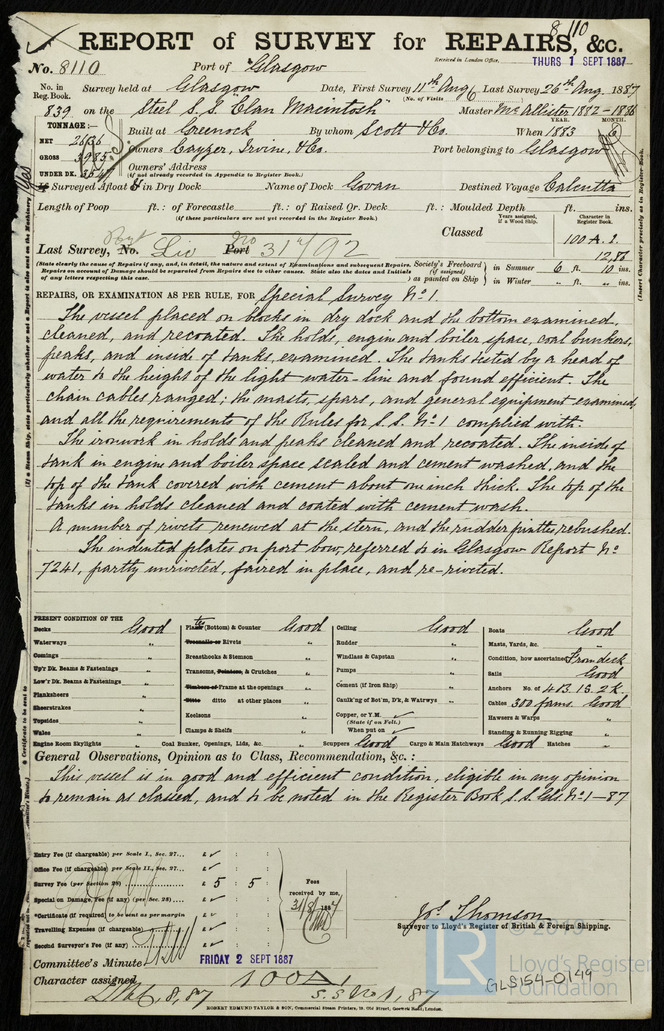 8110
REPORT of SURVEY for REPAIRS, &c.
No. 8110 Port of Glasgow Received in London Office, THURS 1 SEPT 1887
No. in Reg. Book. Survey held at Glasgow Date, First Survey 11th Aug Last Survey 26th Aug. 1887
(No. of Visits 6)
839 on the Steel S.S. "Clan Macintosh" Master McAllister 1882-1886
TONNAGE:— YEAR. MONTH.
NET 2636 Built at Greenock By whom Scott & Co. When 1883
GROSS 3985 Owners Cayzer, Irvine, & Co. Port belonging to Glasgow
UNDER DK. Owners' Address
(if not already recorded in Appendix to Register Book.)
If Surveyed Afloat & in Dry Dock Name of Dock Govan Destined Voyage Calcutta
Length of Poop ft.: of Forecastle ft.: of Raised Qr. Deck ft.: Moulded Depth ft. ins.
(if these particulars are not yet recorded in the Register Book.) Years assigned, if a Wood Ship. Character in Register Book.
Classed 100 A. 1.
12,86
Last Survey, No. Liv Port No 31792
(State clearly the cause of Repairs if any, and, in detail, the nature and extent of Examinations and subsequent Repairs.
Repairs on account of Damage should be separated from Repairs due to other causes. State also the dates and Initials
of any letters respecting this case.
Society's Freeboard (if assigned) as painted on Ship } in Summer 6 ft. 10 ins.
in Winter " ft. " ins.
REPAIRS, OR EXAMINATION AS PER RULE, FOR Special Survey No. 1.
The vessel placed on blocks in dry dock and the bottom examined,
cleaned, and recoated. The holds, engine and boiler space, coal bunkers,
peaks, and inside of tanks examined. The tanks tested by a head of
water to the height of the light water-line and found efficient. The
chain cables ranged; the masts, spars, and general equipment examined,
and all the requirements of the Rules for S.S. No. 1 complied with.
The ironwork in holds and peaks cleaned and recoated. The inside of
tank in engine and boiler space scaled and cement washed, and the
top of the tank covered with cement about one inch thick. The top of the
tanks in holds cleaned and coated with cement wash.
A number of rivets renewed at the stern, and the rudder pintles rebushed.
The indented plates on port bow, referred to in Glasgow Report No.
7241, partly unriveted, faired in place, and re-riveted.
PRESENT CONDITION OF THE
Decks Good Plates (Bottom) & Counter Good Ceiling Good Boats Good
Waterways " Treenails or Rivets " Rudder " Masts, Yards, &c. "
Comings " Breasthooks & Stemson " Windlass & Capstan " Condition, how ascertained From deck
Up'r Dk. Beams & Fastenings " Transoms, Pointers, & Crutches " Pumps " Sails Good
Low'r Dk. Beams & Fastenings " Timbers or Frame at the openings " Cement (if Iron Ship) " Anchors No. of 4 B. 1 S. 2 K.
Planksheers " Ditto ditto at other places " Caulk'g of Bot'm, D'k, & Watrwys " Cables 300 fams. Good
Sheerstrakes " Keelsons " Copper, or Y.M. (State if on Felt.) Hawsers & Warps "
Topsides " Clamps & Shelfs " When put on Standing & Running Rigging "
Wales "
Engine Room Skylights " Coal Bunker, Openings, Lids, &c. " Scuppers Good Cargo & Main Hatchways Good Hatches "
General Observations, Opinion as to Class, Recommendation, &c.:
This vessel is in good and efficient condition, eligible in my opinion
to remain as classed, and to be noted in the Register Book S.S. Gls. No. 1—87
Entry Fee (if chargeable) per Scale I., Sec. 27...
Office Fee (if chargeable) per Scale II., Sec. 27...
Survey Fee (per Section 28) £ 5 : 5 :
Special on Damage, Fee (if any) (per Sec. 28)
*Certificate (if required) to be sent as per margin
Travelling Expenses (if chargeable)
Second Surveyor's Fee (if any)
Fees received by me, 31/8/1887
Jos. Thomson
Surveyor to Lloyd's Register of British & Foreign Shipping.
Committee's Minute FRIDAY 2 SEPT 1887
Character assigned 100A1
S.S. No 1, 87
ROBERT EDMUND TAYLOR & SON, Commercial Steam Printers, 19, Old Street, Goswell Road, London.
© 2019
LR Lloyd's Register Foundation
GLS154-0149